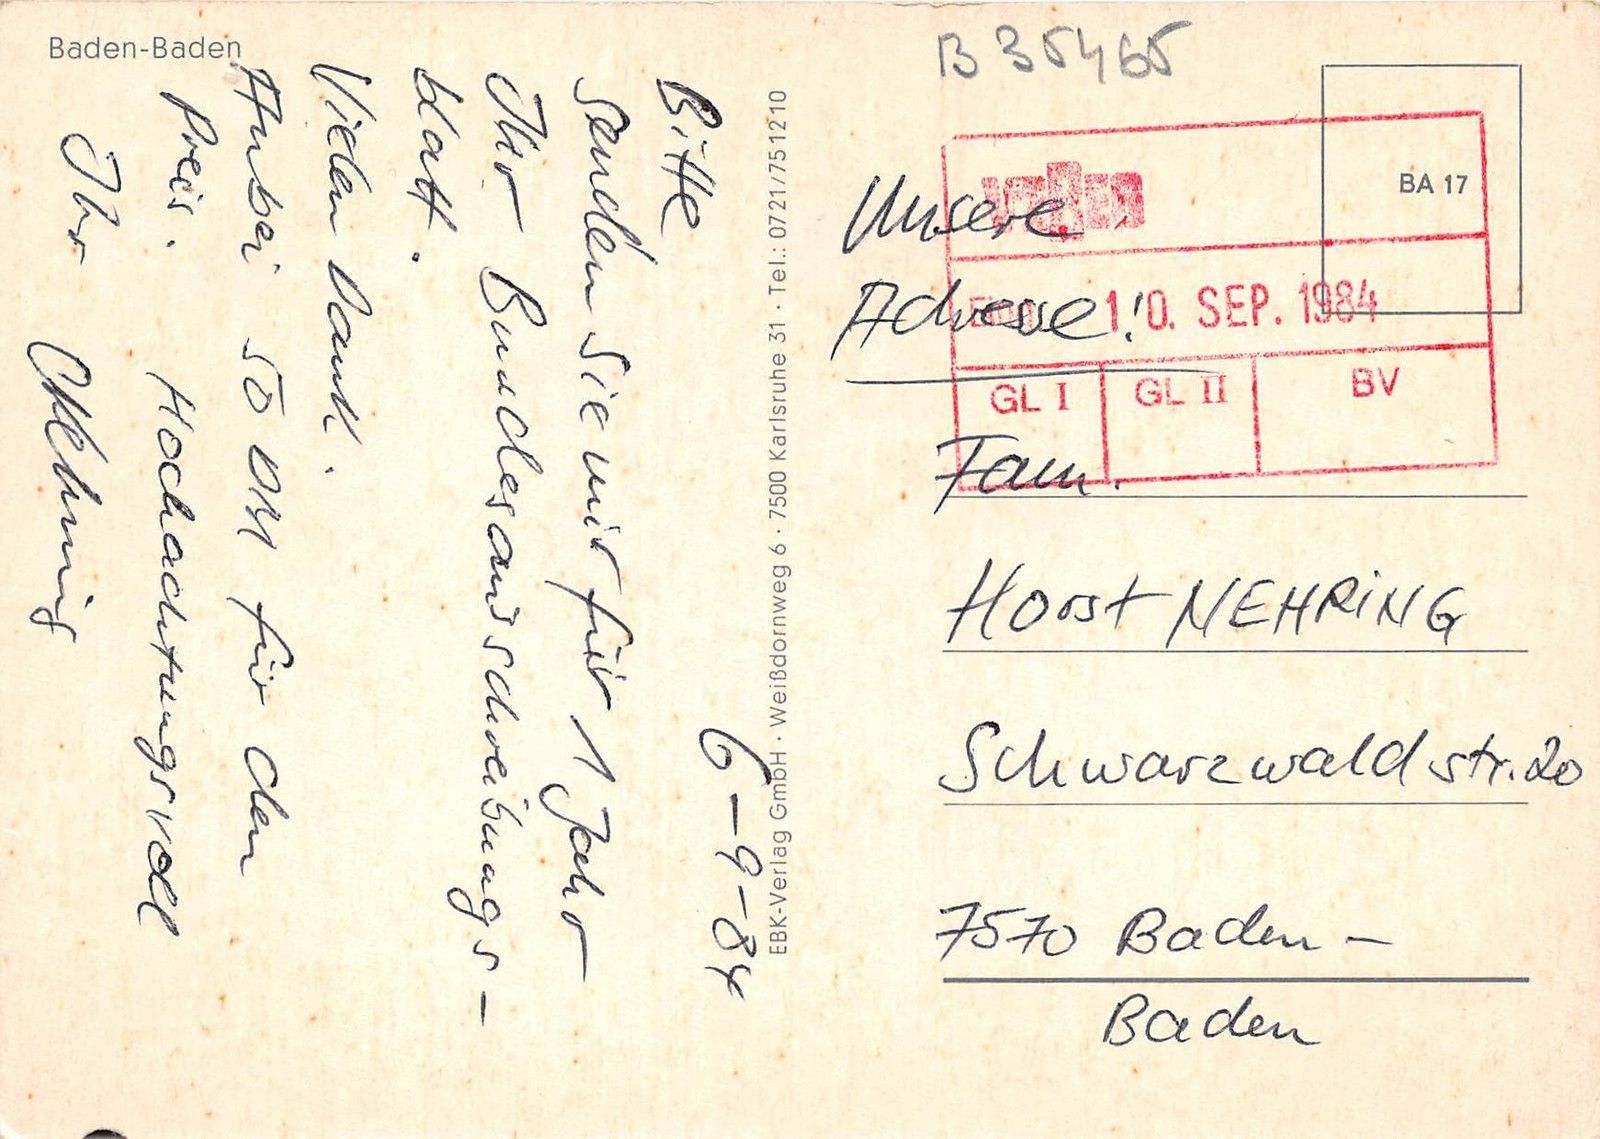 Baden-Baden
B 35465
6-9-84
Bitte
senden Sie mir für 1 Jahr
Ihr Bundesausschreibungs-
blatt.
Vielen Dank.
Anbei 50 DM für den
Preis. Hochachtungsvoll
Ihr
EBK-Verlag GmbH · Weißdornweg 6 · 7500 Karlsruhe 31 · Tel.: 0721/751210
BA 17
Unsere
Adresse!
10. SEP. 1984
GL I GL II BV
Fam.
Horst NEHRiNG
Schwarzwaldstr. 20
7570 Baden-
Baden